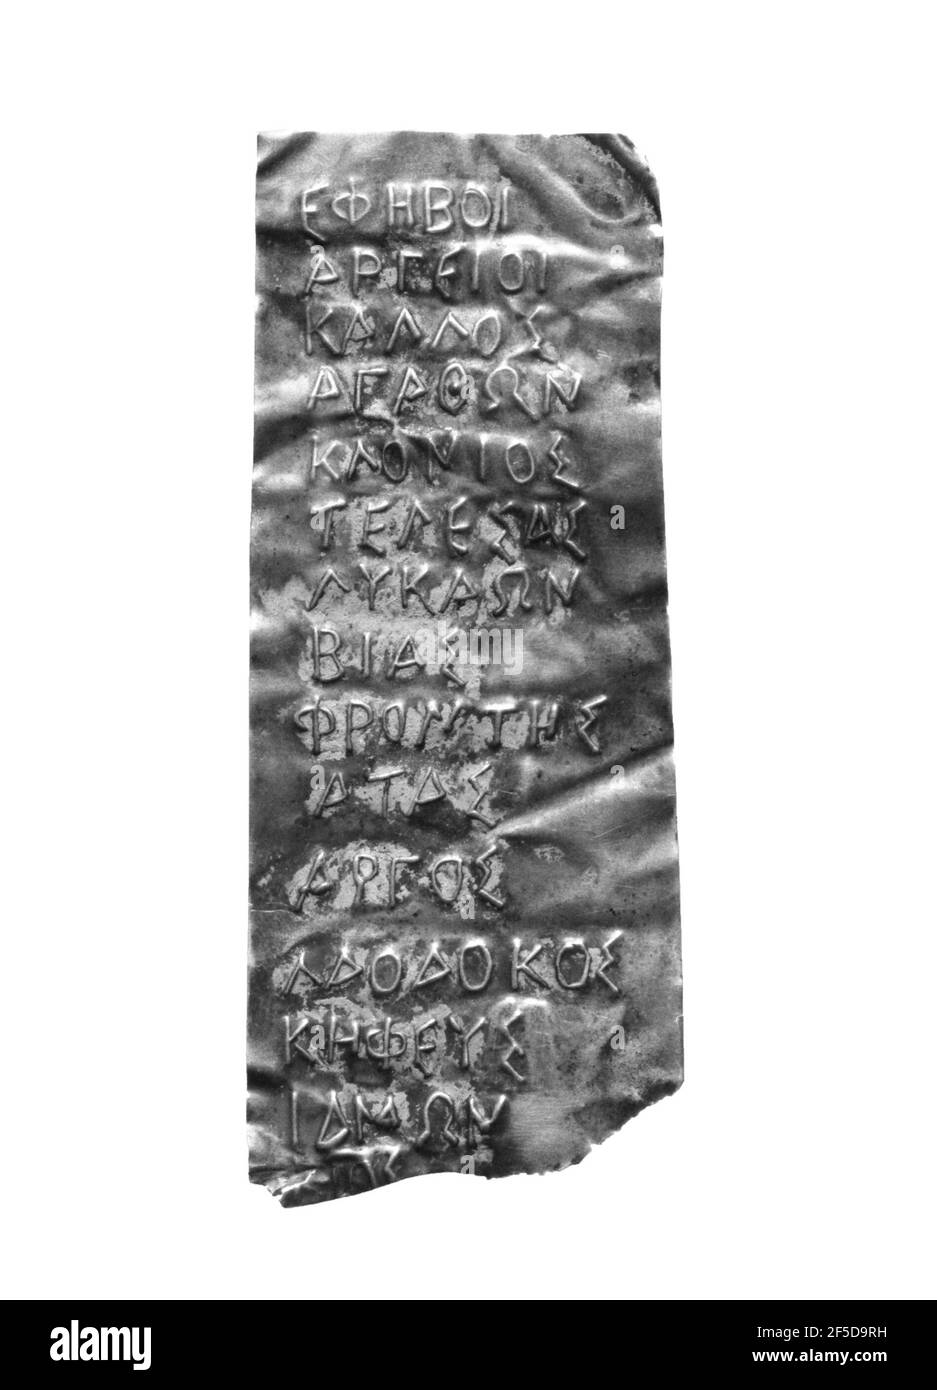 ΕΦΗΒΟΙ
ΑΡΓΕΙΟΙ
ΚΑΛΛΟΣ
ΑΓΑΘΩΝ
ΚΛΟΝΙΟΣ
ΤΕΛΕΣΑΣ
ΛΥΚΑΩΝ
ΒΙΑΣ
ΦΡΟΝΤΗΣ
ΑΤΑΣ
ΑΡΓΟΣ
ΛΔΟΔΟΚΟΣ
ΚΗΦΕΥΣ
ΙΔΜΩΝ
a
alamy
a
a
a
alamy
Image ID: 2F5D9RH
www.alamy.com